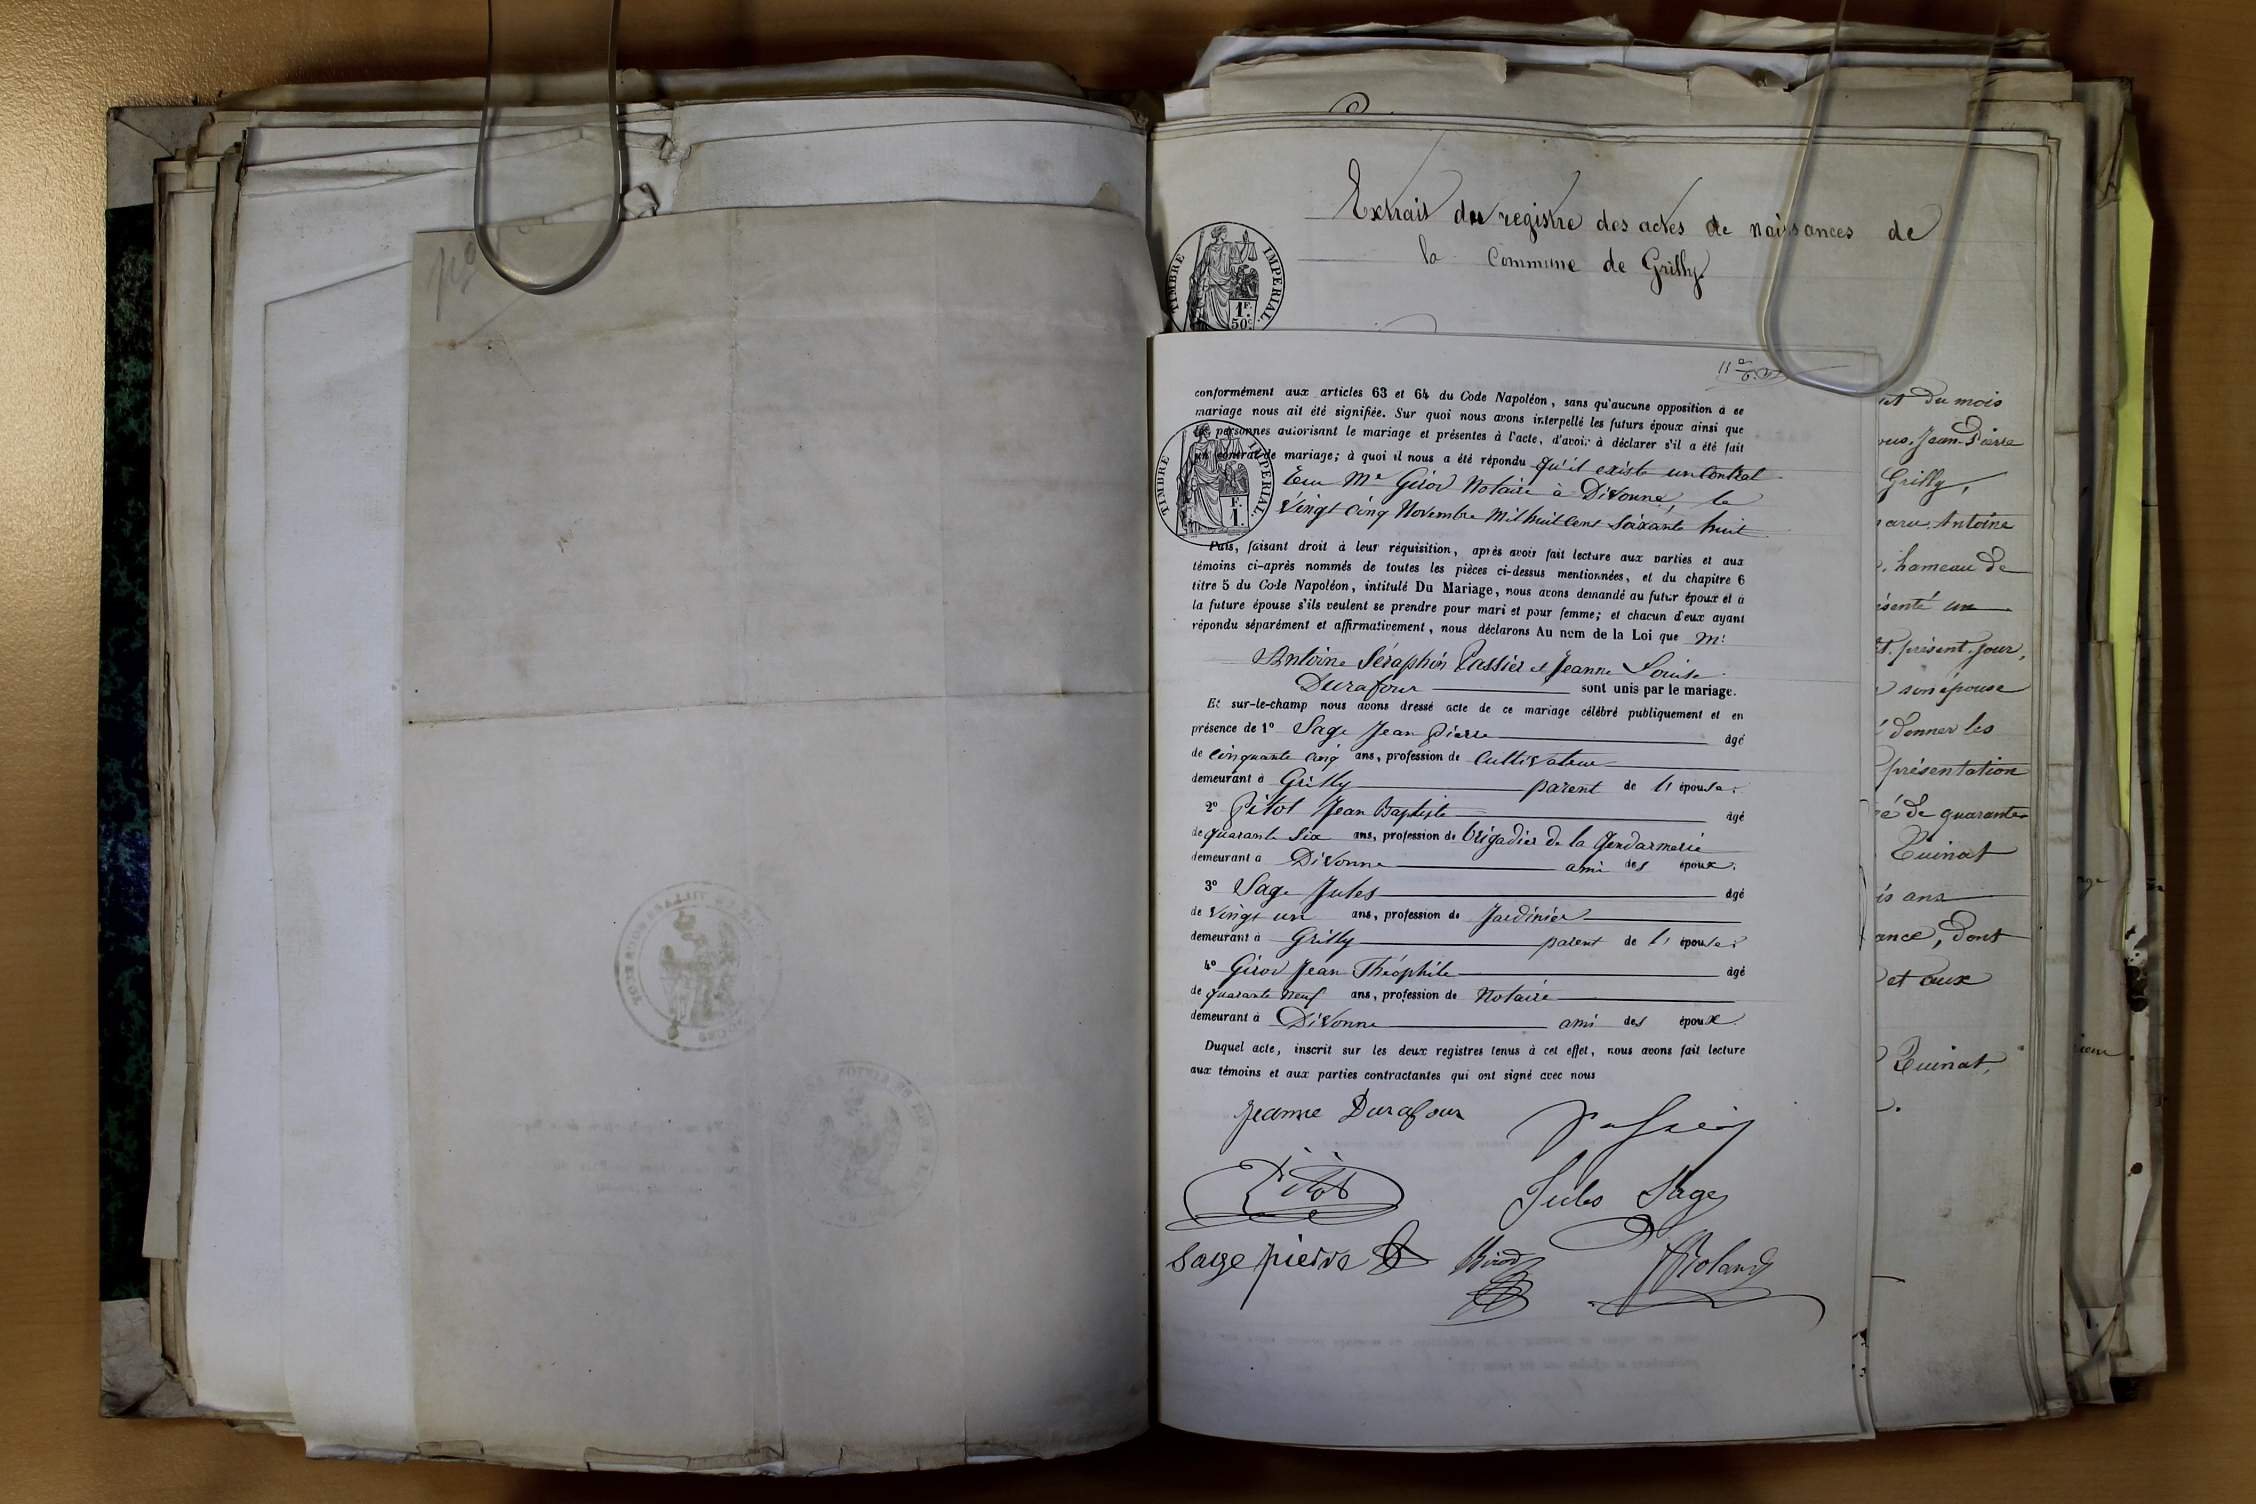 Extrait du registre des actes de naissances de
la Commune de Grilly
TIMBRE IMPERIAL
1F.
50c
conformément aux articles 63 et 64 du Code Napoléon, sans qu'aucune opposition à ce
mariage nous ait été signifiée. Sur quoi nous avons interpellé les futurs époux ainsi que
les personnes autorisant le mariage et présentes à l'acte, d'avoir à déclarer s'il a été fait
un contrat de mariage; à quoi il nous a été répondu qu'il existe un Contrat
TIMBRE IMPERIAL.
F.
1.
Reçu Me Girod Notaire à Divonne, le
Vingt cinq Novembre Mil huit cent Soixante huit
Puis, faisant droit à leur réquisition, après avoir fait lecture aux parties et aux
témoins ci-après nommés de toutes les pièces ci-dessus mentionnées, et du chapitre 6
titre 5 du Code Napoléon, intitulé Du Mariage, nous avons demandé au futur époux et à
la future épouse s'ils veulent se prendre pour mari et pour femme; et chacun d'eux ayant
répondu séparément et affirmativement, nous déclarons Au nom de la Loi que Mr
Antoine Séraphin Passier et Jeanne Louise
Durafour sont unis par le mariage.
Et sur-le-champ nous avons dressé acte de ce mariage célébré publiquement et en
présence de 1° Sage Jean Pierre âgé
de cinquante cinq ans, profession de Cultivateur
demeurant à Grilly parent de l'épouse.
2° Pitot Jean Baptiste âgé
de quarante Six ans, profession de brigadier de la Gendarmerie
demeurant à Divonne ami des époux.
3° Sage Jules âgé
de Vingt un ans, profession de Jardinier
demeurant à Grilly parent de l'épouse.
4° Girod Jean Théophile âgé
de quarante neuf ans, profession de Notaire
demeurant à Divonne ami des époux.
Duquel acte, inscrit sur les deux registres tenus à cet effet, nous avons fait lecture
aux témoins et aux parties contractantes qui ont signé avec nous
Jeanne Durafour Passier
Pitot Jules Sage
Sage pierre Girod Roland
du mois
Jean-Pierre
Grilly,
Antoine
hameau de
un
présent jour,
son épouse
donner les
présentation
de quarante
Ruinat
ans
dont
et aux
Ruinat,